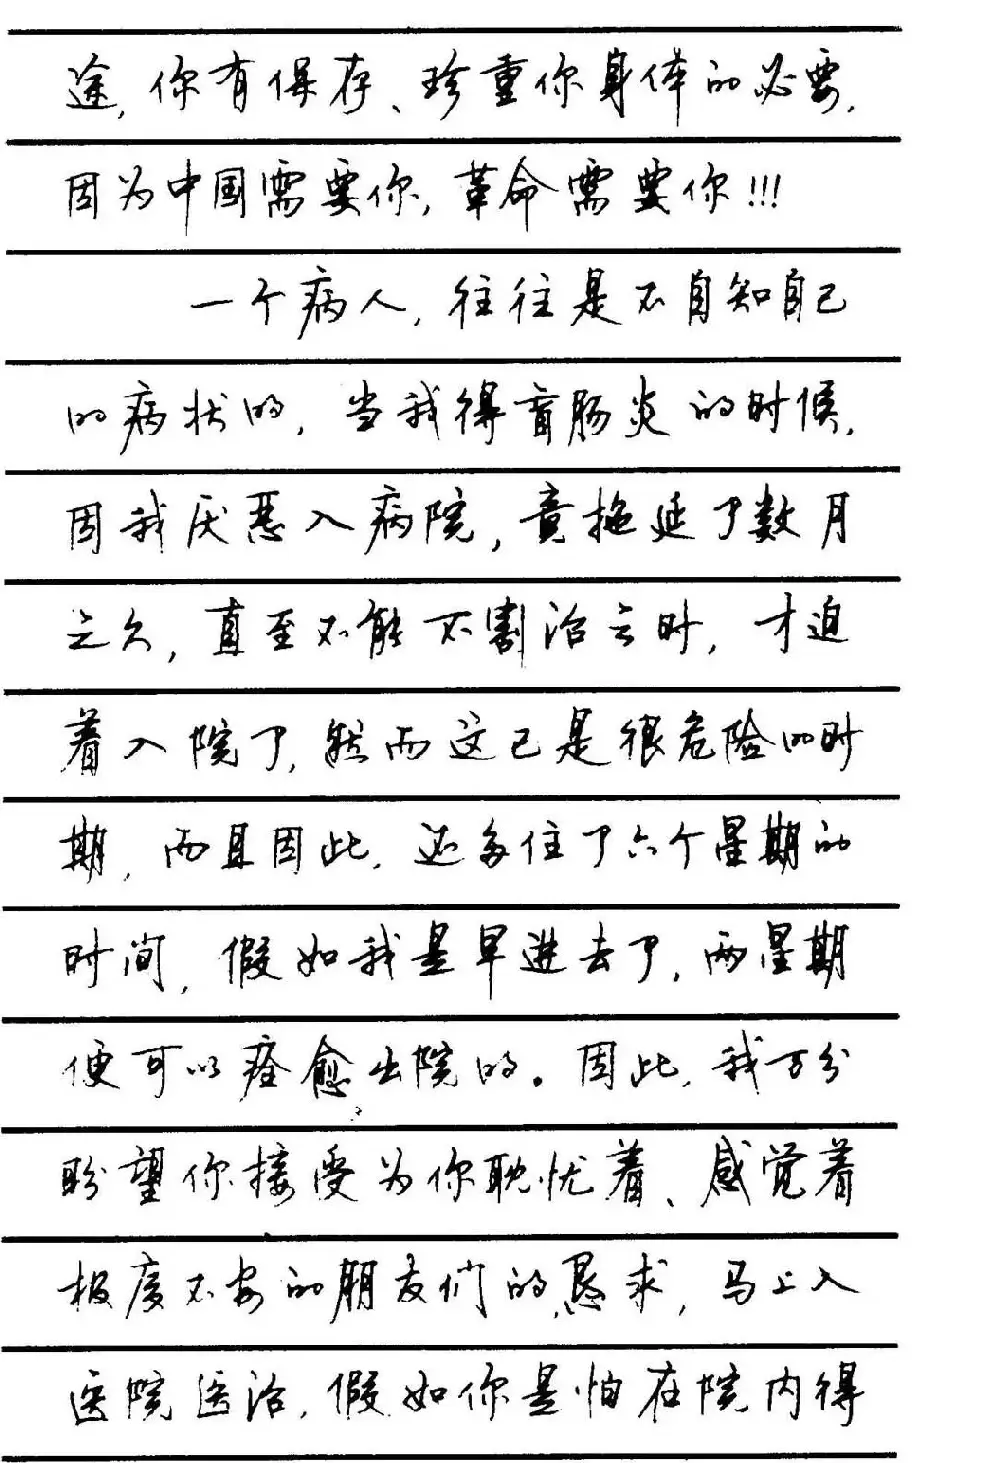 途，你有保存、珍重你身体的必要，
因为中国需要你，革命需要你!!!
一个病人，往往是不自知自己
的病状的，当我得盲肠炎的时候，
因我厌恶入病院，竟拖延了数月
之久，直至不能不割治之时，才迫
着入院了，然而这已是很危险的时
期，而且因此，还多住了六个星期的
时间，假如我是早进去了，两星期
便可以痊愈出院的。因此，我万分
盼望你接受为你耽忧着、感觉着
极度不安的朋友们的恳求，马上入
医院医治，假如你是怕在院内得